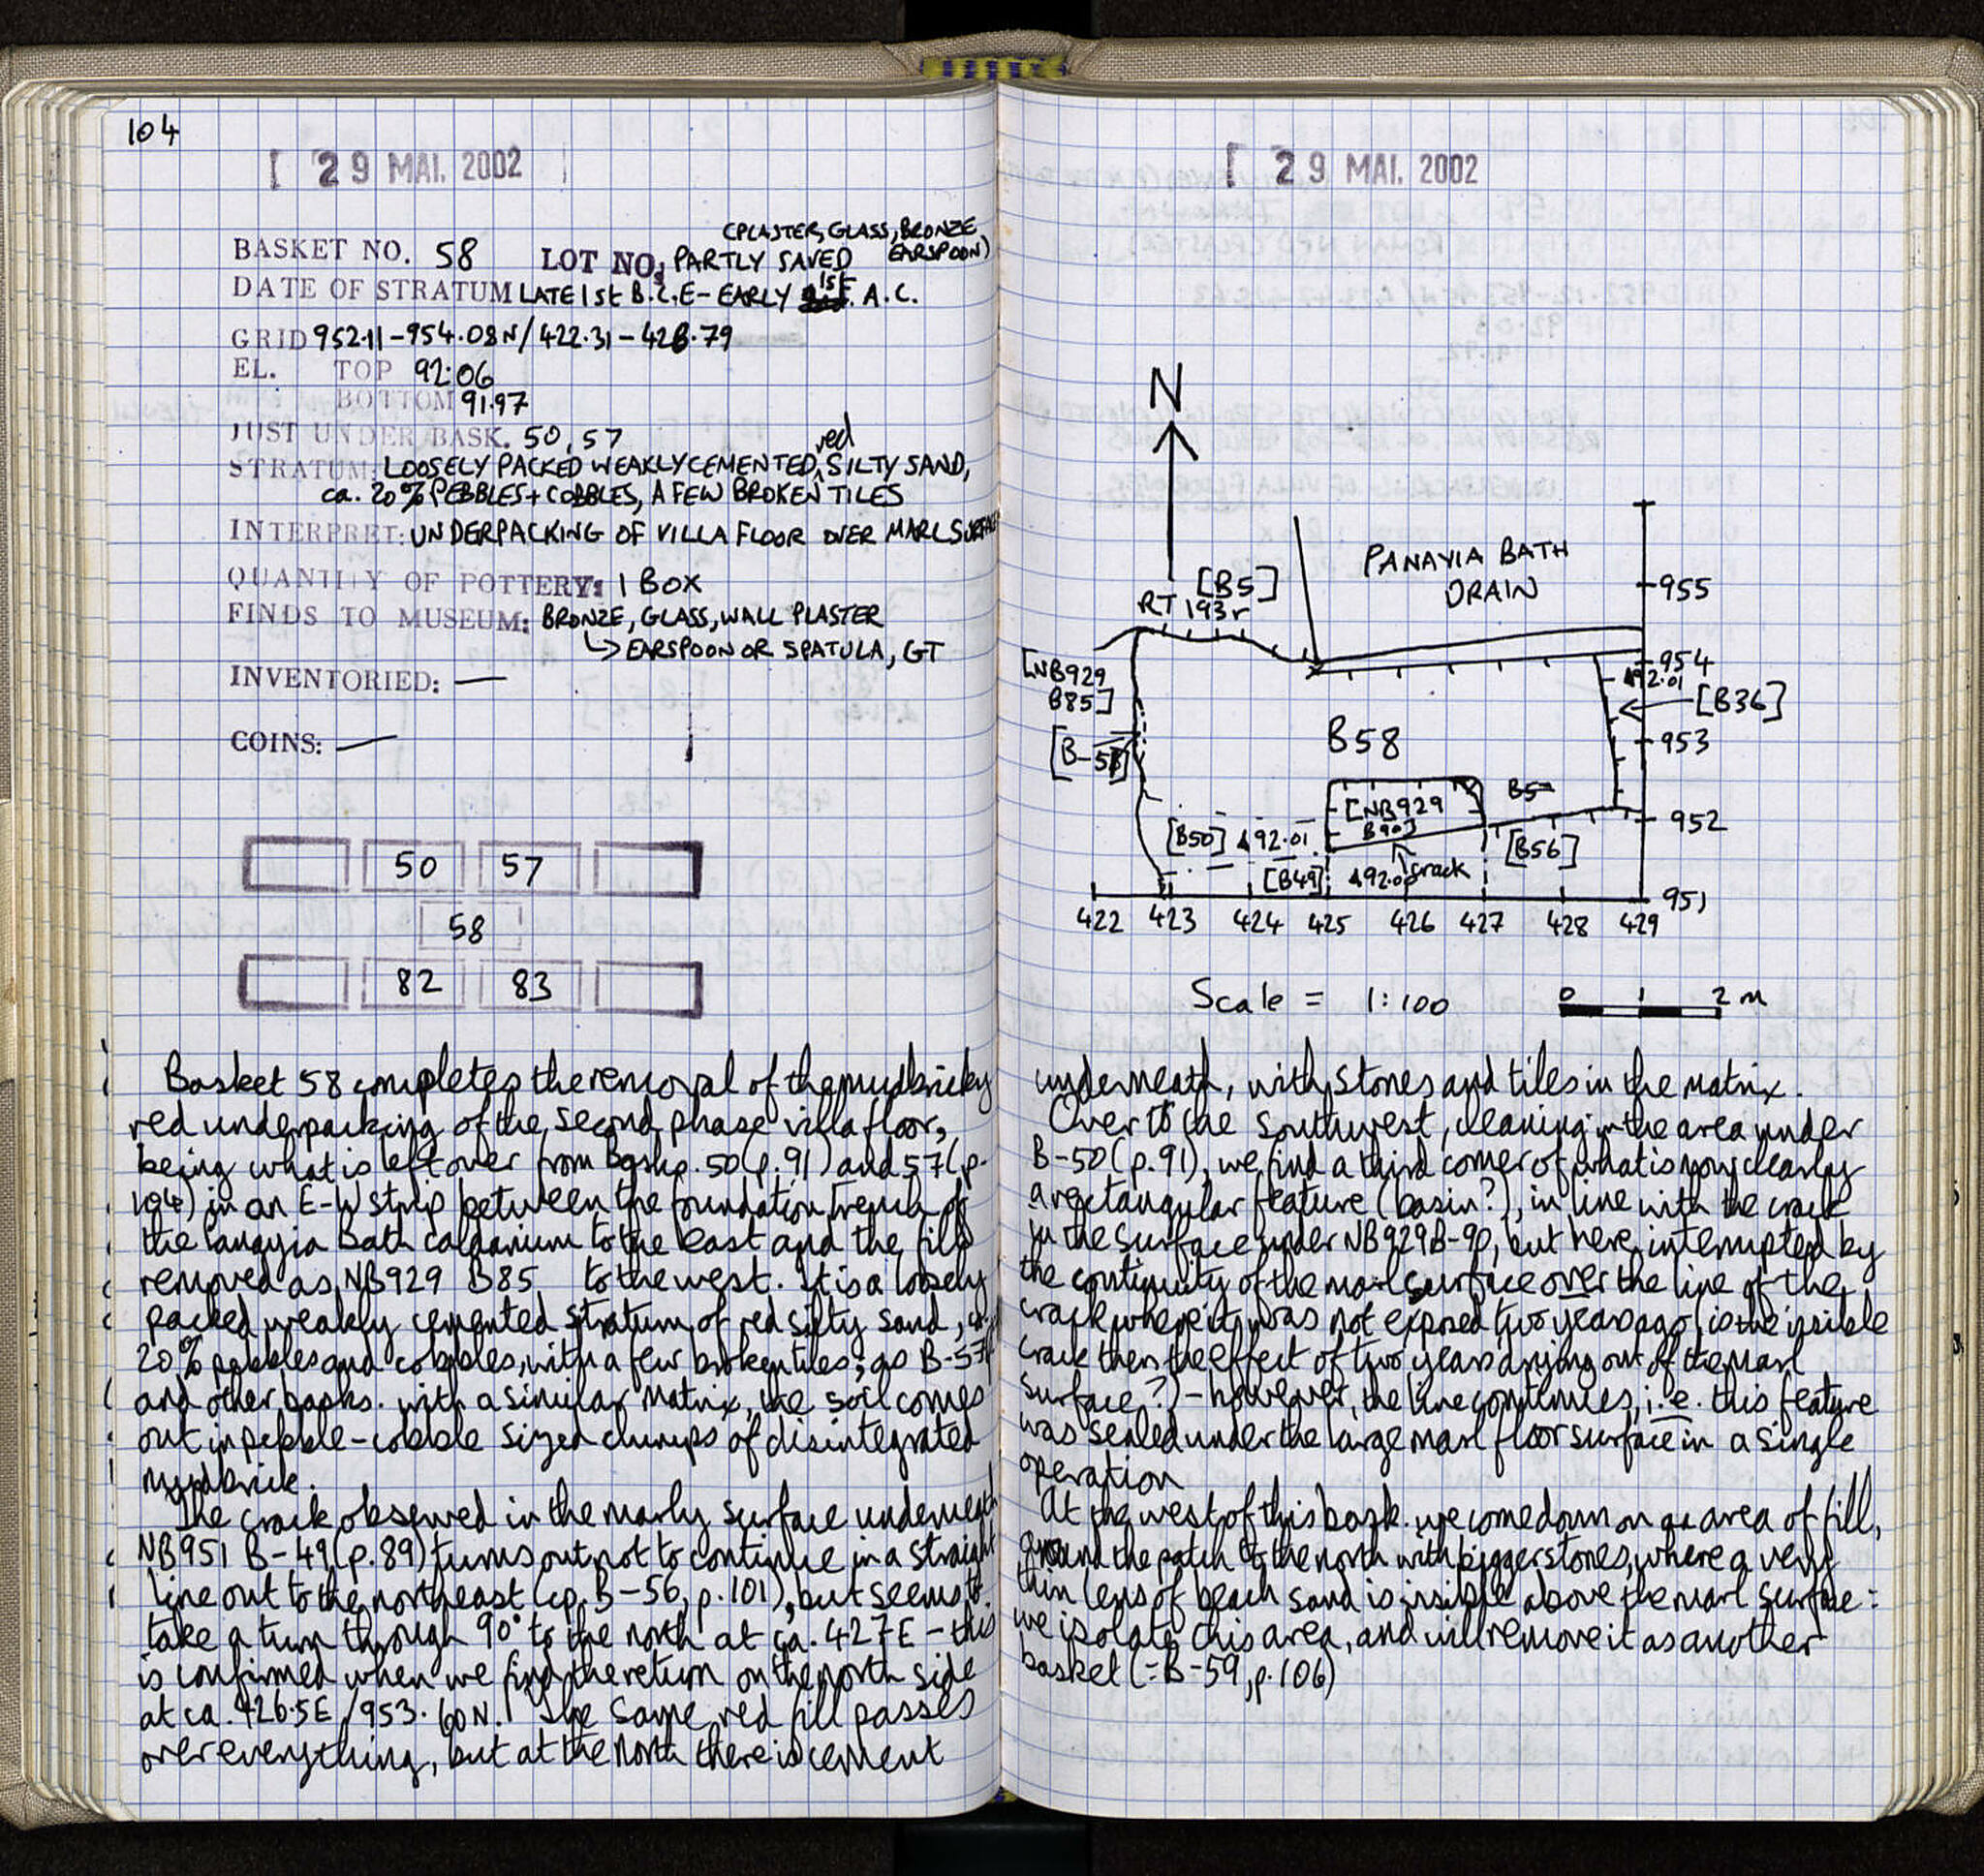 104
29 MAI. 2002
(PLASTER, GLASS, BRONZE
EARSPOON)
BASKET NO. 58 LOT NO: PARTLY SAVED
DATE OF STRATUM LATE 1st B.C.E - EARLY 1st. A.C.
GRID 952.11-954.08N/422.31-428.79
EL. TOP 92.06
BOTTOM 91.97
JUST UNDER BASK. 50, 57
red
STRATUM: LOOSELY PACKED WEAKLY CEMENTED, SILTY SAND,
ca. 20% PEBBLES + COBBLES, A FEW BROKEN TILES
INTERPRET: UNDERPACKING OF VILLA FLOOR OVER MARL SURFACE
QUANTITY OF POTTERY: 1 BOX
FINDS TO MUSEUM: BRONZE, GLASS, WALL PLASTER
↳ EARSPOON OR SPATULA, GT
INVENTORIED: —
COINS: —
50 57
58
82 83
Basket 58 completes the removal of the mudbricky
red underpacking of the second phase villa floor,
being what is left over from Basks. 50 (p. 91) and 57 (p.
104) in an E-W strip between the foundation trench of
the Panayia Bath caldarium to the East and the fill
removed as NB929 B85 to the west. It is a loosely
packed weakly cemented stratum of red silty sand, ca.
20% pebbles and cobbles, with a few broken tiles; as B-57
and other basks. with a similar matrix, the soil comes
out in pebble-cobble sized clumps of disintegrated
mudbrick.
The crack observed in the marly surface underneath
NB951 B-49 (p. 89) turns out not to continue in a straight
line out to the northeast (cp. B-56, p. 101), but seems to
take a turn through 90° to the north at ca. 427E - this
is confirmed when we find the return on the north side
at ca. 426.5E / 953.60N. The same red fill passes
over everything, but at the north there is cement
29 MAI. 2002
N
PANAYIA BATH
DRAIN
[B5]
RT 193r
955
954
92.01
[NB929
B85]
[B36]
[B-58]
B58
953
[NB929
B90]
[B50] 92.01
952
[B56]
[B49] 92.00 crack
951
422 423 424 425 426 427 428 429
Scale = 1:100 0 1 2 m
underneath, with stones and tiles in the matrix.
Over to the southwest, cleaning in the area under
B-50 (p. 91), we find a third corner of what is now clearly
a rectangular feature (basin?), in line with the crack
in the surface under NB929 B-90, but here interrupted by
the continuity of the marl surface over the line of the
crack where it was not exposed two years ago (is the visible
crack then the effect of two years drying out of the marl
surface?) - however, the line continues, i.e. this feature
was sealed under the large marl floor surface in a single
operation
At the west of this bask. we come down on an area of fill,
around the patch to the north with bigger stones, where a very
thin lens of beach sand is visible above the marl surface:
we isolate this area, and will remove it as another
basket (= B-59, p. 106)